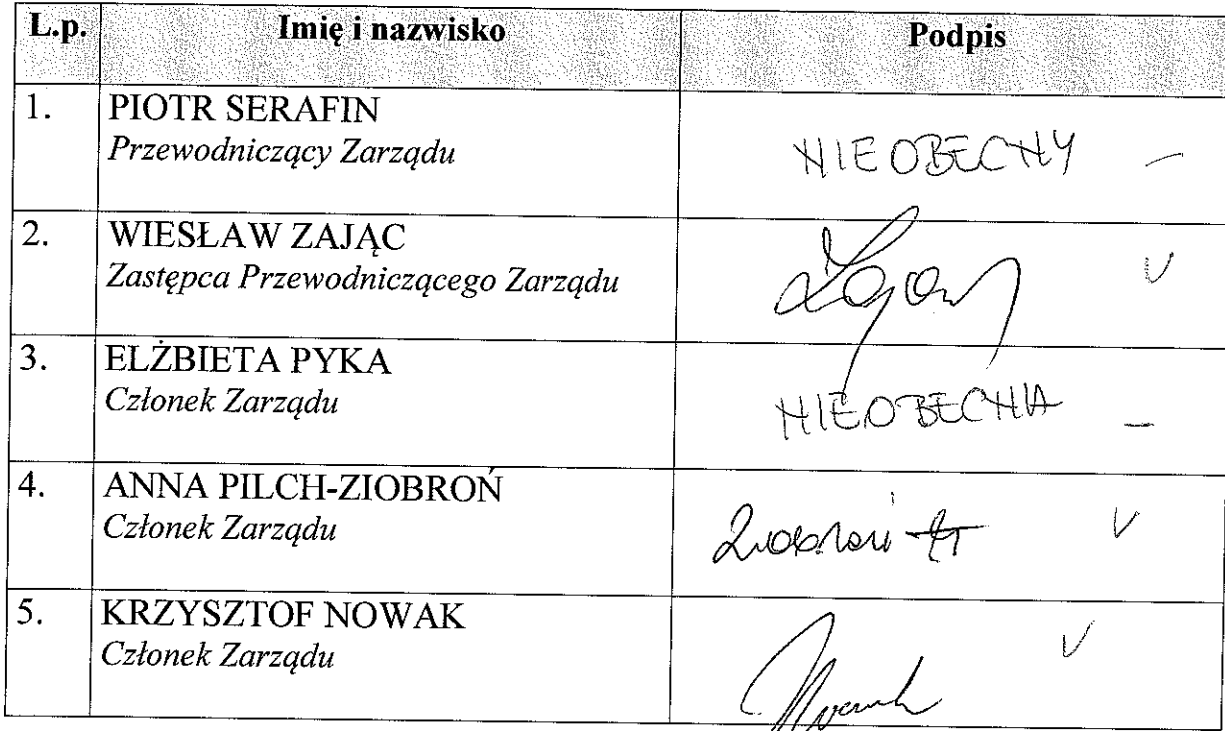 L.p. Imię i nazwisko Podpis
1. PIOTR SERAFIN
Przewodniczący Zarządu
NIEOBECNY –
2. WIESŁAW ZAJĄC
Zastępca Przewodniczącego Zarządu
Zając V
3. ELŻBIETA PYKA
Członek Zarządu
NIEOBECNA –
4. ANNA PILCH-ZIOBROŃ
Członek Zarządu
V
5. KRZYSZTOF NOWAK
Członek Zarządu
V
Nowak